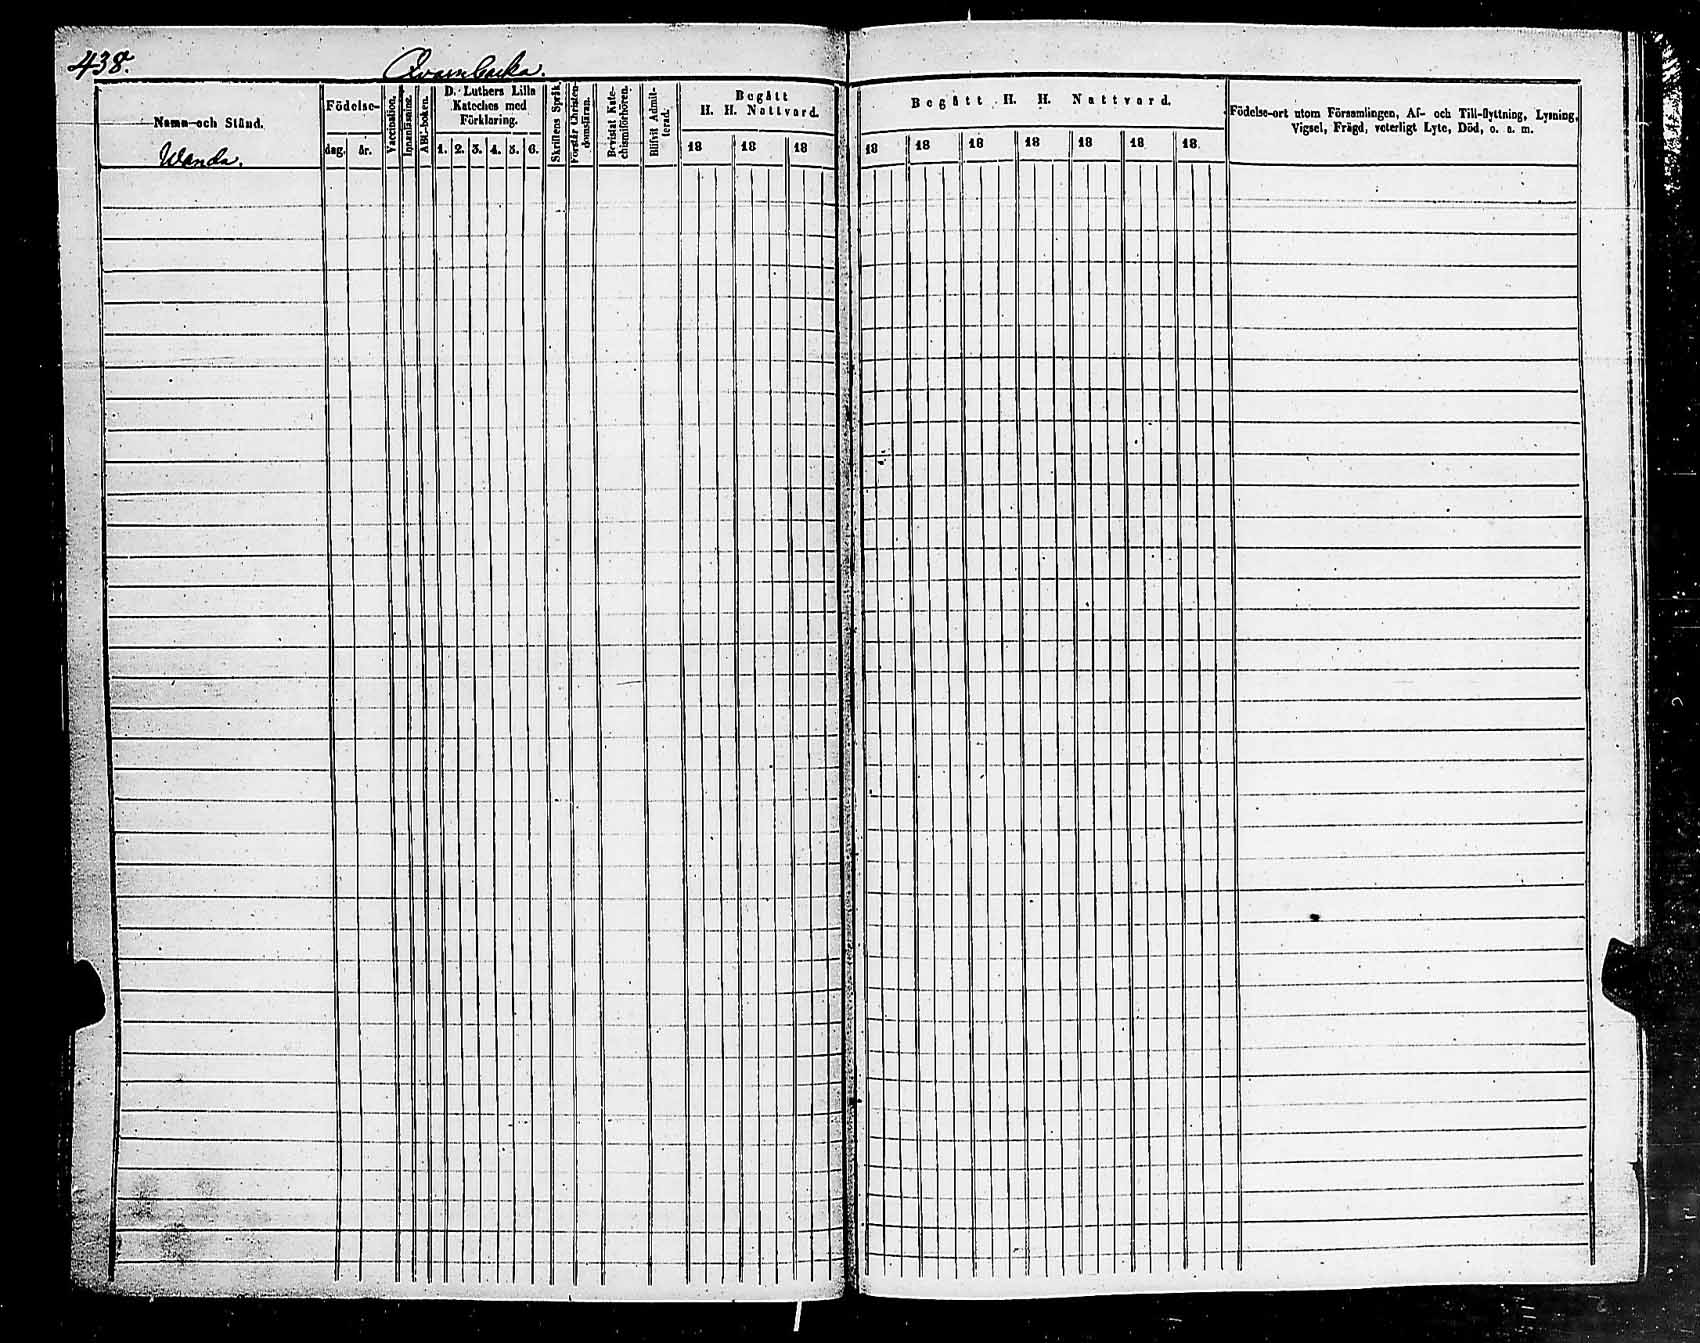 438.
Qvarnbacka.
Namn och Stånd.
Wanda.
Födelse-
dag. år.
Vaccination.
Innanläsning.
ABC-boken.
D. Luthers Lilla
Kateches med
Förklaring.
1. 2. 3. 4. 5. 6.
Skriftens Språk.
Förstår Christen-
domsläran.
Bevistat Kate-
chismiförhören.
Blifvit Admit-
terad.
Begått
H. H. Nattvard.
18 18 18
Begått H. H. Nattvard.
18 18 18 18 18 18 18
Födelse-ort utom Församlingen, Af- och Till-flyttning, Lysning,
Vigsel, Frägd, veterligt Lyte, Död, o. s. m.